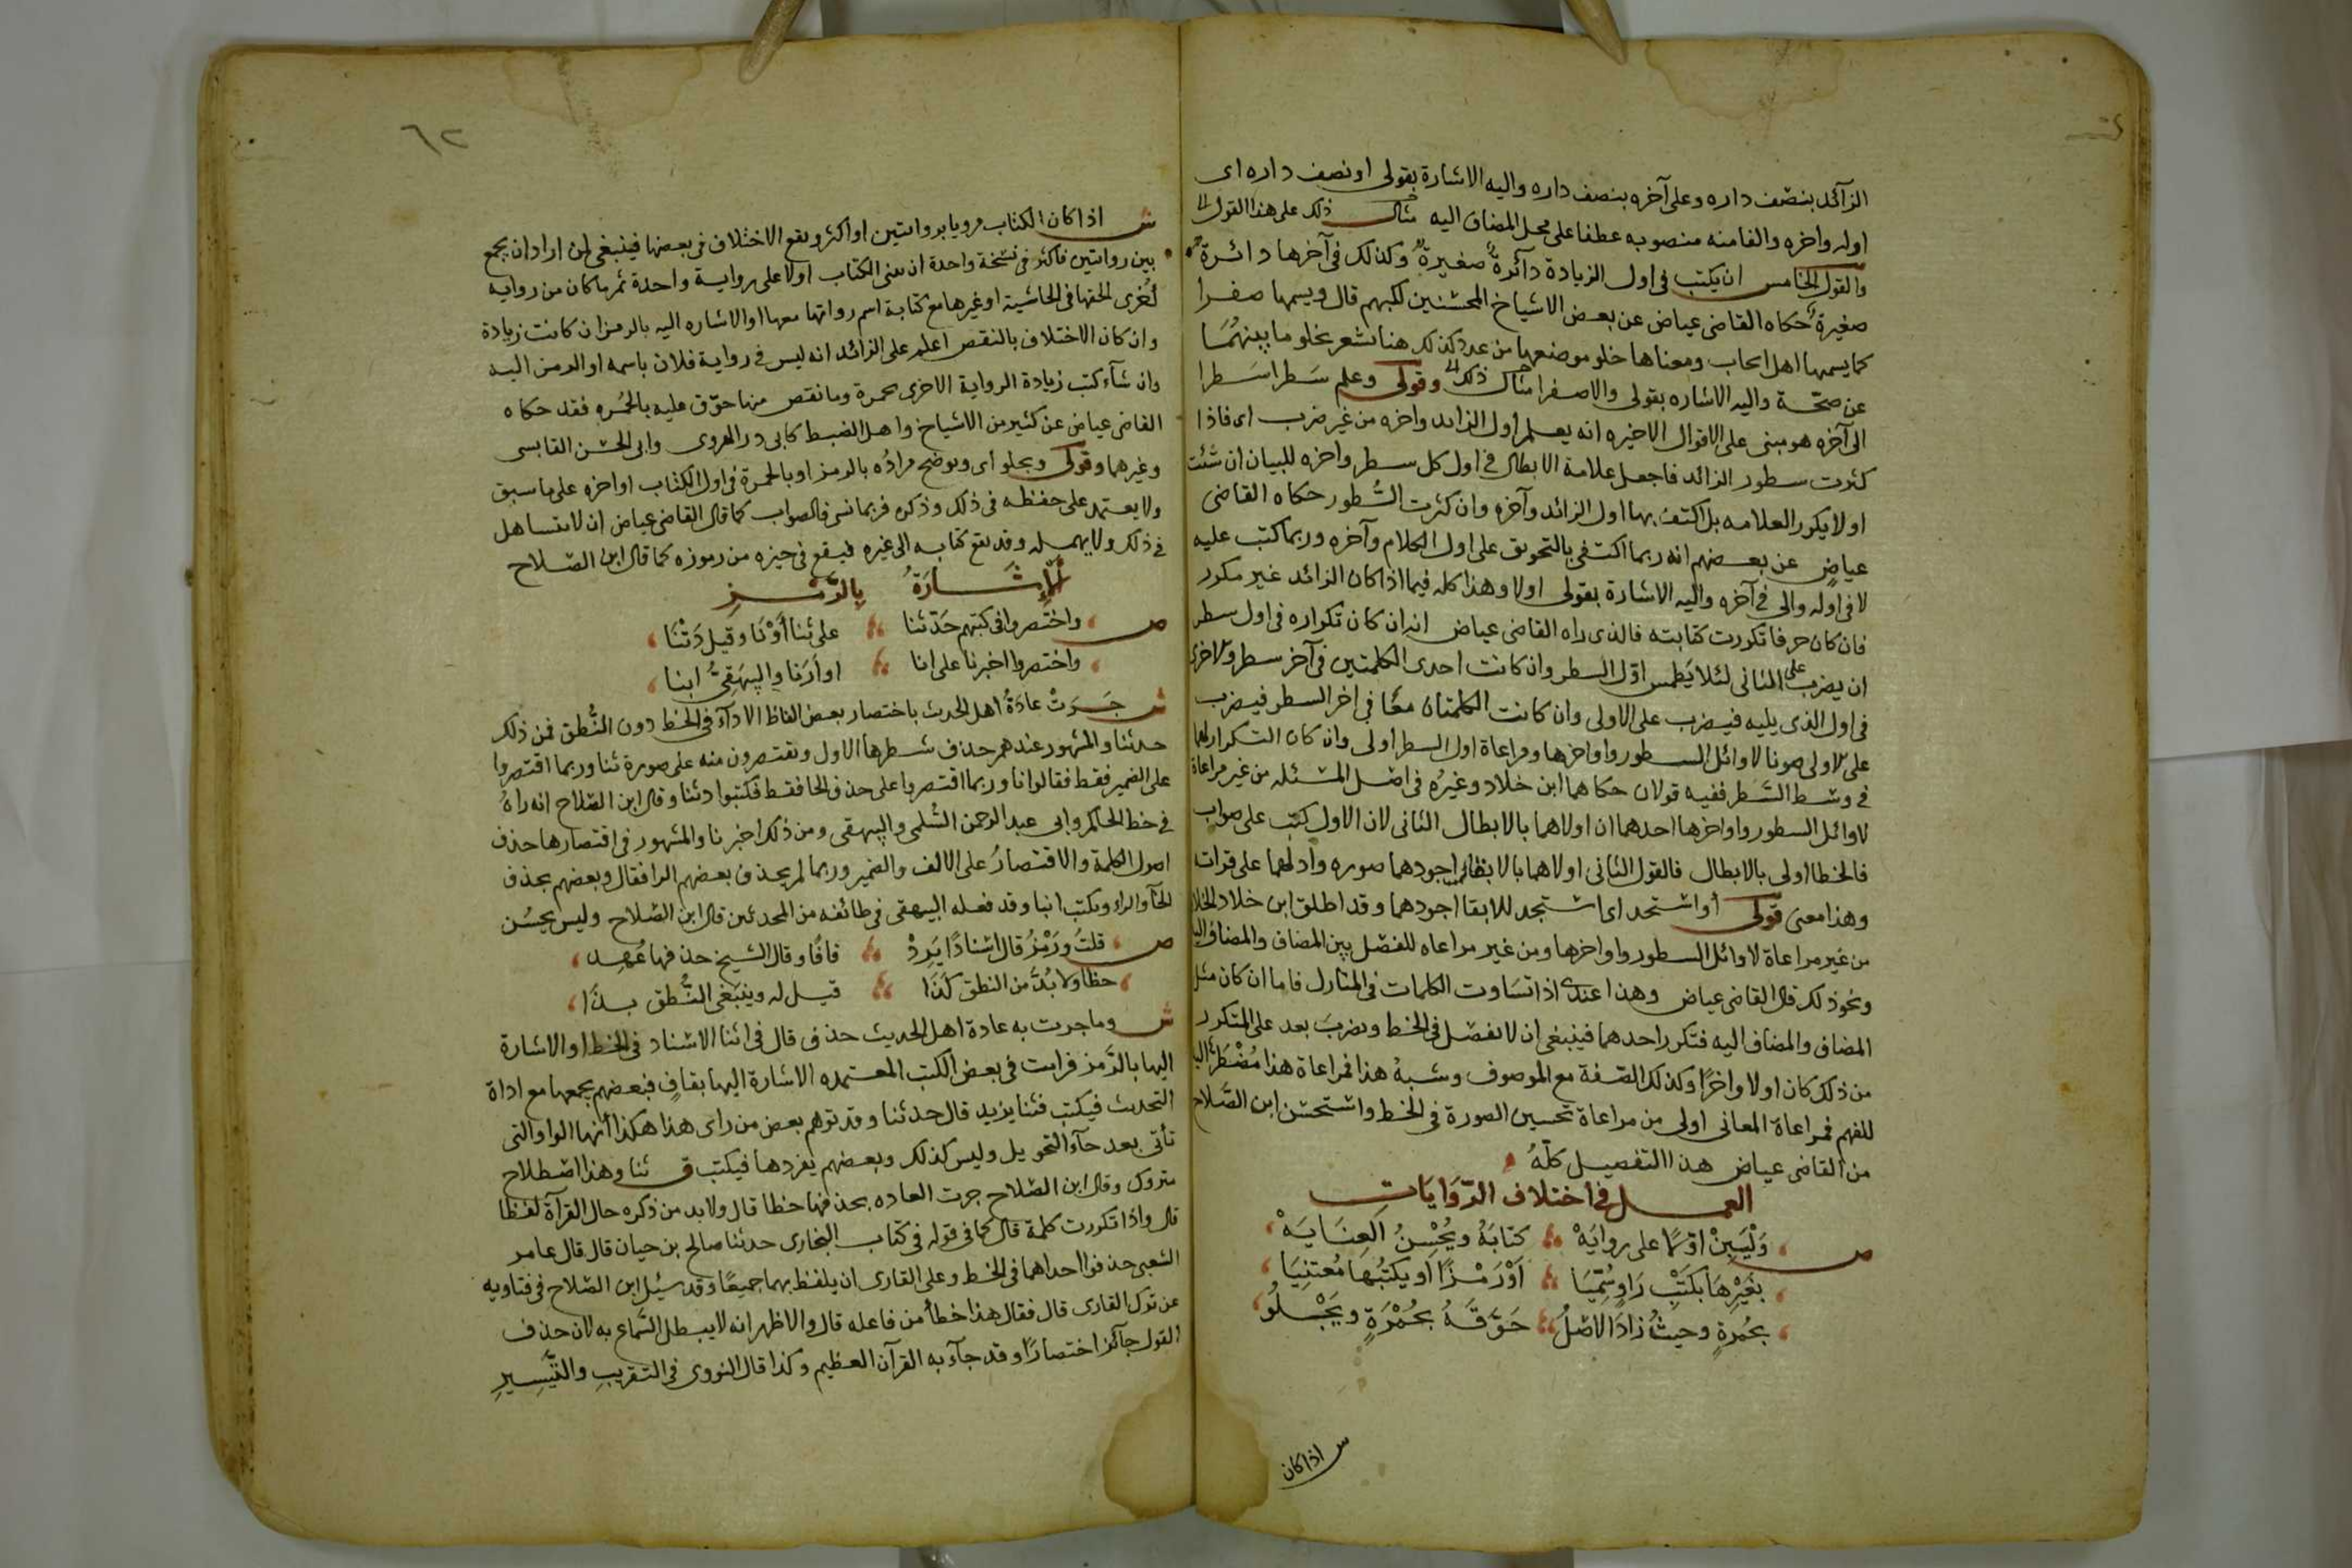 الزآئد بنصف داره وعلى آخره بنصف داره واليه الاشارة بقولى او نصف داره اى
اوله واخره والفا منه منصوبه عطفا على محل المضاف اليه مثال ذلك على هذا القول لا
والقول الخامس ان يكتب فى اول الزيادة دآئرة صغيرة وكذلك فى آخرها دائرة
صغيرة حكاه القاضى عياض عن بعض الاشياخ المحسنين لكتبهم قال ويسمها صفرا
كما يسمها اهل الحساب ومعناها خلو موضعها من عدد كذلك هنا تشعر بخلو ما بينهما
عن صحة واليه الاشاره بقولى والا صفرا مثال ذلك وقولى وعلم سطرا سطرا
الى آخره هو مبنى على الاقوال الاخيره انه يعلم اول الزايد واخره من غير ضرب اى فاذا
كثرت سطور الزائد فاجعل علامة الابطال فى اول كل سطر واخره للبيان ان شئت
او لا يكرر العلامه بل اكتف بها اول الزائد وآخره وان كثرت السطور حكاه القاضى
عياض عن بعضهم انه ربما اكتفى بالتحويق على اول الكلام وآخره وربما كتب عليه
لا فى اوله والى فى آخره واليه الاشارة بقولى اولا وهذا كله فيما اذا كان الزائد غير مكرر
فان كان حرفا تكررت كتابته فالذى راه القاضى عياض انه ان كان تكراره فى اول سطر
ان يضرب على الثانى لئلا يطمس اول السطر وان كانت احدى الكلمتين فى آخر سطر والاخرى
فى اول الذى يليه فيضرب على الاولى وان كانت الكلمتان معا فى اخر السطر فيضرب
على الاولى صونا لاوائل السطور واواخرها ومراعاة اول السطر اولى وان كان التكرار لهما
فى وسط السطر ففيه قولان حكاهما ابن خلاد وغيره فى اصل المسئله من غير مراعاة
لاوائل السطور واواخرها احدهما ان اولاهما بالابطال الثانى لان الاول كتب على صواب
فالخطا اولى بالابطال فالقول الثانى اولاهما بالابقا اجودهما صوره وادلهما على قراته
وهذا معنى قولى او استجد اى استجد للابقا اجودهما وقد اطلق ابن خلاد الخلاف
من غير مراعاة لاوائل السطور واواخرها ومن غير مراعاه للفصل بين المضاف والمضاف اليه
ونحو ذلك قال القاضى عياض وهذا عندى اذا تساوت الكلمات فى المنازل فاما ان كان مثل
المضاف والمضاف اليه فتكرر احدهما فينبغى ان لا يفصل فى الخط ويضرب بعد على المتكرر
من ذلك كان اولا واخرا وكذلك الصفة مع الموصوف وشبه هذا فمراعاة هذا مضطر اليها
للفهم فمراعاة المعانى اولى من مراعاة تحسين الصورة فى الخط واستحسن ابن الصلاح
من القاضى عياض هذا التفصيل كله
العمل فى اختلاف الروايات
ص وليبن اولا على روايه كتابه ويحسن العنايه
بغيرها بكتب راو سميا او رمزا او يكتبها معتنيا
بحمرة وحيث زاد الاصل حوقه بحمرة ويجلو
ش اذا كان
٦٢
ش اذا كان الكتاب مرويا بروايتين او اكثر ويقع الاختلاف فى بعضها فينبغى لمن اراد ان يجمع
بين روايتين فاكثر فى نسخة واحدة ان يبنى الكتاب اولا على رواية واحدة ثم ما كان من رواية
اخرى الحقها فى الحاشية او غيرها مع كتابة اسم رواتها معها او الاشاره اليه بالرمز ان كانت زيادة
وان كان الاختلاف بالنقص اعلم على الزائد انه ليس فى رواية فلان باسمه او الرمز اليه
وان شآء كتب زيادة الرواية الاخرى بحمرة وما نقص منها حوق عليه بالحمره فقد حكاه
القاضى عياض عن كثير من الاشياخ واهل الضبط كابى ذر الهروى وابى الحسن القابسى
وغيرهما وقولى ويجلو اى ويوضح مراده بالرمز او بالحمرة فى اول الكتاب او اخره على ما سبق
ولا يعتمد على حفظه فى ذلك وذكره فربما نسى فالصواب كما قال القاضى عياض ان لا يتساهل
فى ذلك ولا يهمله وقد يقع كتابه الى غيره فيقع فى حيزه من رموزه كما قال ابن الصلاح
الاشارة بالرمز
ص واختصروا فى كتبهم حدثنا على ثنا او نا وقيل دثنا
واختصروا اخبرنا على انا او ارنا والبيهقى ابنا
ش جرت عادة اهل الحديث باختصار بعض الفاظ الادآء فى الخط دون النطق فمن ذلك
حدثنا والمشهور عندهم حذف شطرها الاول ويقتصرون منه على صورة ثنا وربما اقتصروا
على الضمير فقط فقالوا نا وربما اقتصروا على حذف الحا فقط فكتبوا دثنا وقال ابن الصلاح انه راه
فى خط الحاكم وابى عبد الرحمن السلمى والبيهقى ومن ذلك اخبرنا والمشهور فى اقتصارها حذف
اصول الكلمة والاقتصار على الالف والضمير وربما لم يحذف بعضهم الرا فقال وبعضهم بحذف
الخآ والراء ويكتب ابنا وقد فعله البيهقى فى طائفه من المحدثين قال ابن الصلاح وليس بحسن
ص قلت ورمز قال اسنادا يرد قافا وقال الشيخ حذفها عهد
خطا ولا بد من النطق كذا قيل له وينبغى النطق بذا
ش وما جرت به عادة اهل الحديث حذف قال فى اثنا الاسناد فى الخط او الاشارة
اليها بالرمز فرايت فى بعض الكتب المعتمده الاشارة اليها بقاف فبعضهم يجمعها مع اداة
التحديث فيكتب قثنا يزيد قال حدثنا وقد توهم بعض من راى هذا هكذا انها الواو التى
تأتى بعد حآء التحويل وليس كذلك وبعضهم يفردها فيكتب ق ثنا وهذا اصطلاح
متروك وقال ابن الصلاح جرت العاده بحذفها خطا قال ولا بد من ذكره حال القرآة لفظا
قال واذا تكررت كلمة قال كما فى قوله فى كتاب البخارى حدثنا صالح بن حيان قال قال عامر
الشعبى حذفوا احداهما فى الخط وعلى القارى ان يلفظ بهما جميعا وقد سئل ابن الصلاح فى فتاويه
عن ترك القارى قال فقال هذا خطأ من فاعله قال والاظهر انه لا يبطل السماع به لان حذف
القول جآئز اختصارا وقد جآء به القرآن العظيم وكذا قال النووى فى التقريب والتيسير